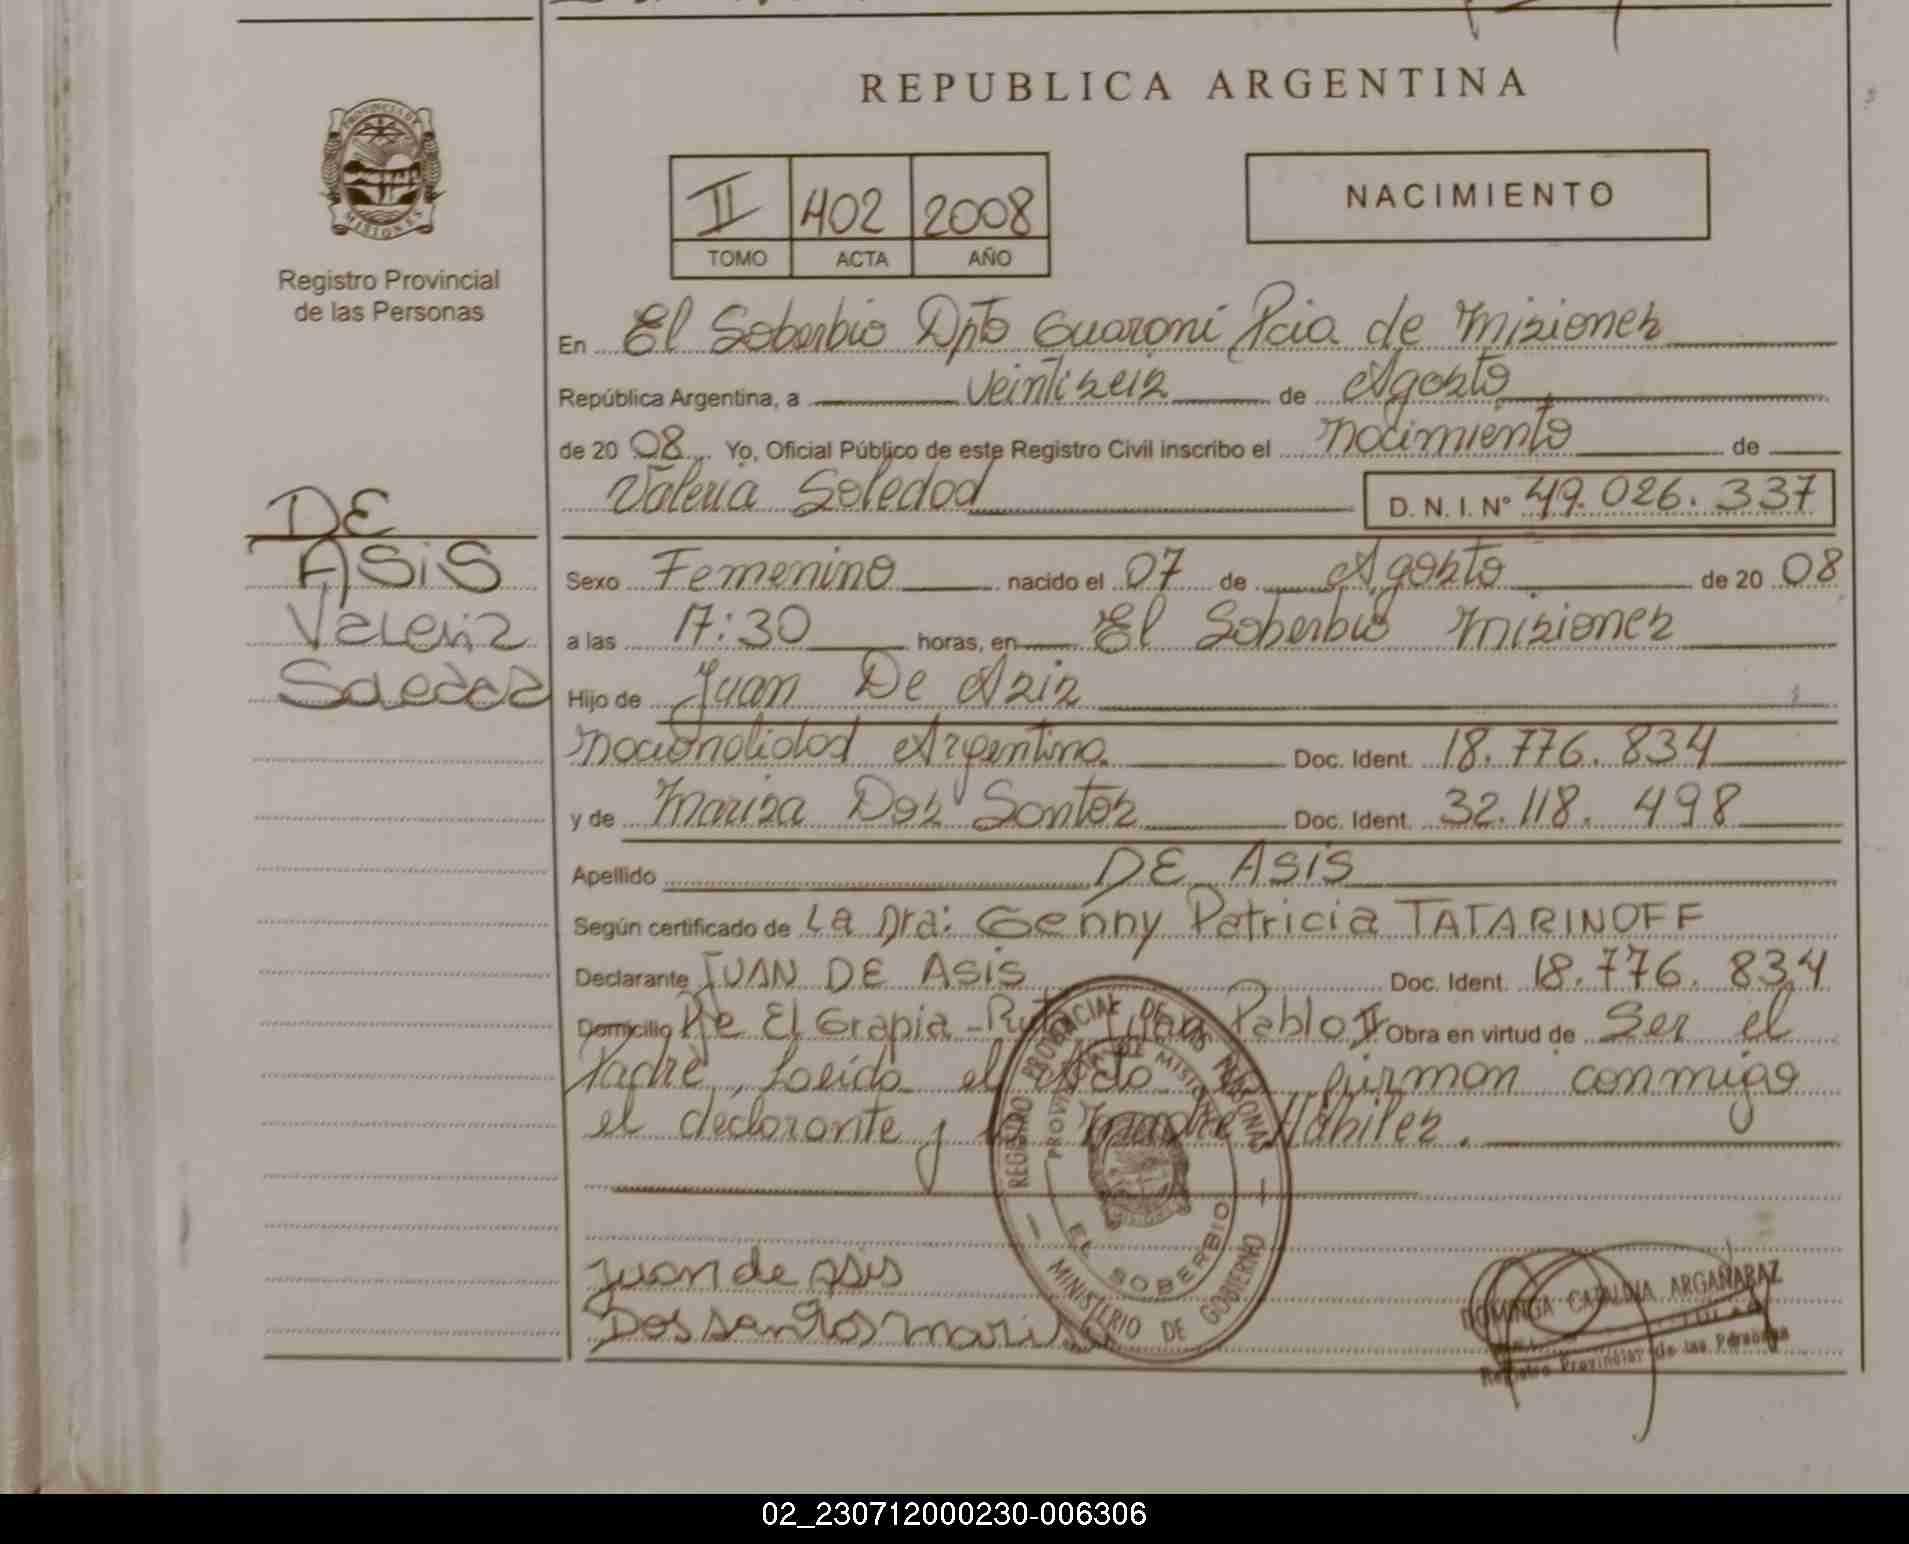 REPUBLICA ARGENTINA
PROVINCIA DE
MISIONES
Registro Provincial
de las Personas
II 402 2008
TOMO ACTA AÑO
NACIMIENTO
En El Soberbio Dpto Guaraní Pcia de Misiones
República Argentina, a veintiseis de Agosto
de 2008 Yo, Oficial Público de este Registro Civil inscribo el nacimiento de
Valeria Soledad D. N. I. N° 49.026.337
DE
ASiS
Valeria
Soledad
Sexo Femenino nacido el 07 de Agosto de 2008
a las 17:30 horas, en El Soberbio Misiones
Hijo de Juan De Asis
nacionalidad Argentina. Doc. Ident. 18.776.834
y de Marisa Dos Santos Doc. Ident. 32.118.498
Apellido DE ASiS
Según certificado de La Dra: Genny Patricia TATARINOFF
Declarante JUAN DE ASiS Doc. Ident. 18.776.834
Domicilio El Grapia - Ruta Juan Pablo II Obra en virtud de Ser el
Padre, Leida el Acta firman conmigo
el declarante y la madre Hábiles.
REGISTRO PROVINCIAL DE LAS PERSONAS
PROVINCIA DE MISIONES
EL SOBERBIO
MINISTERIO DE GOBIERNO
Juan de Asis
Dos santos marisa
DOMINGA CATALINA ARGAÑARAZ
Registro Provincial de las Personas
02_230712000230-006306